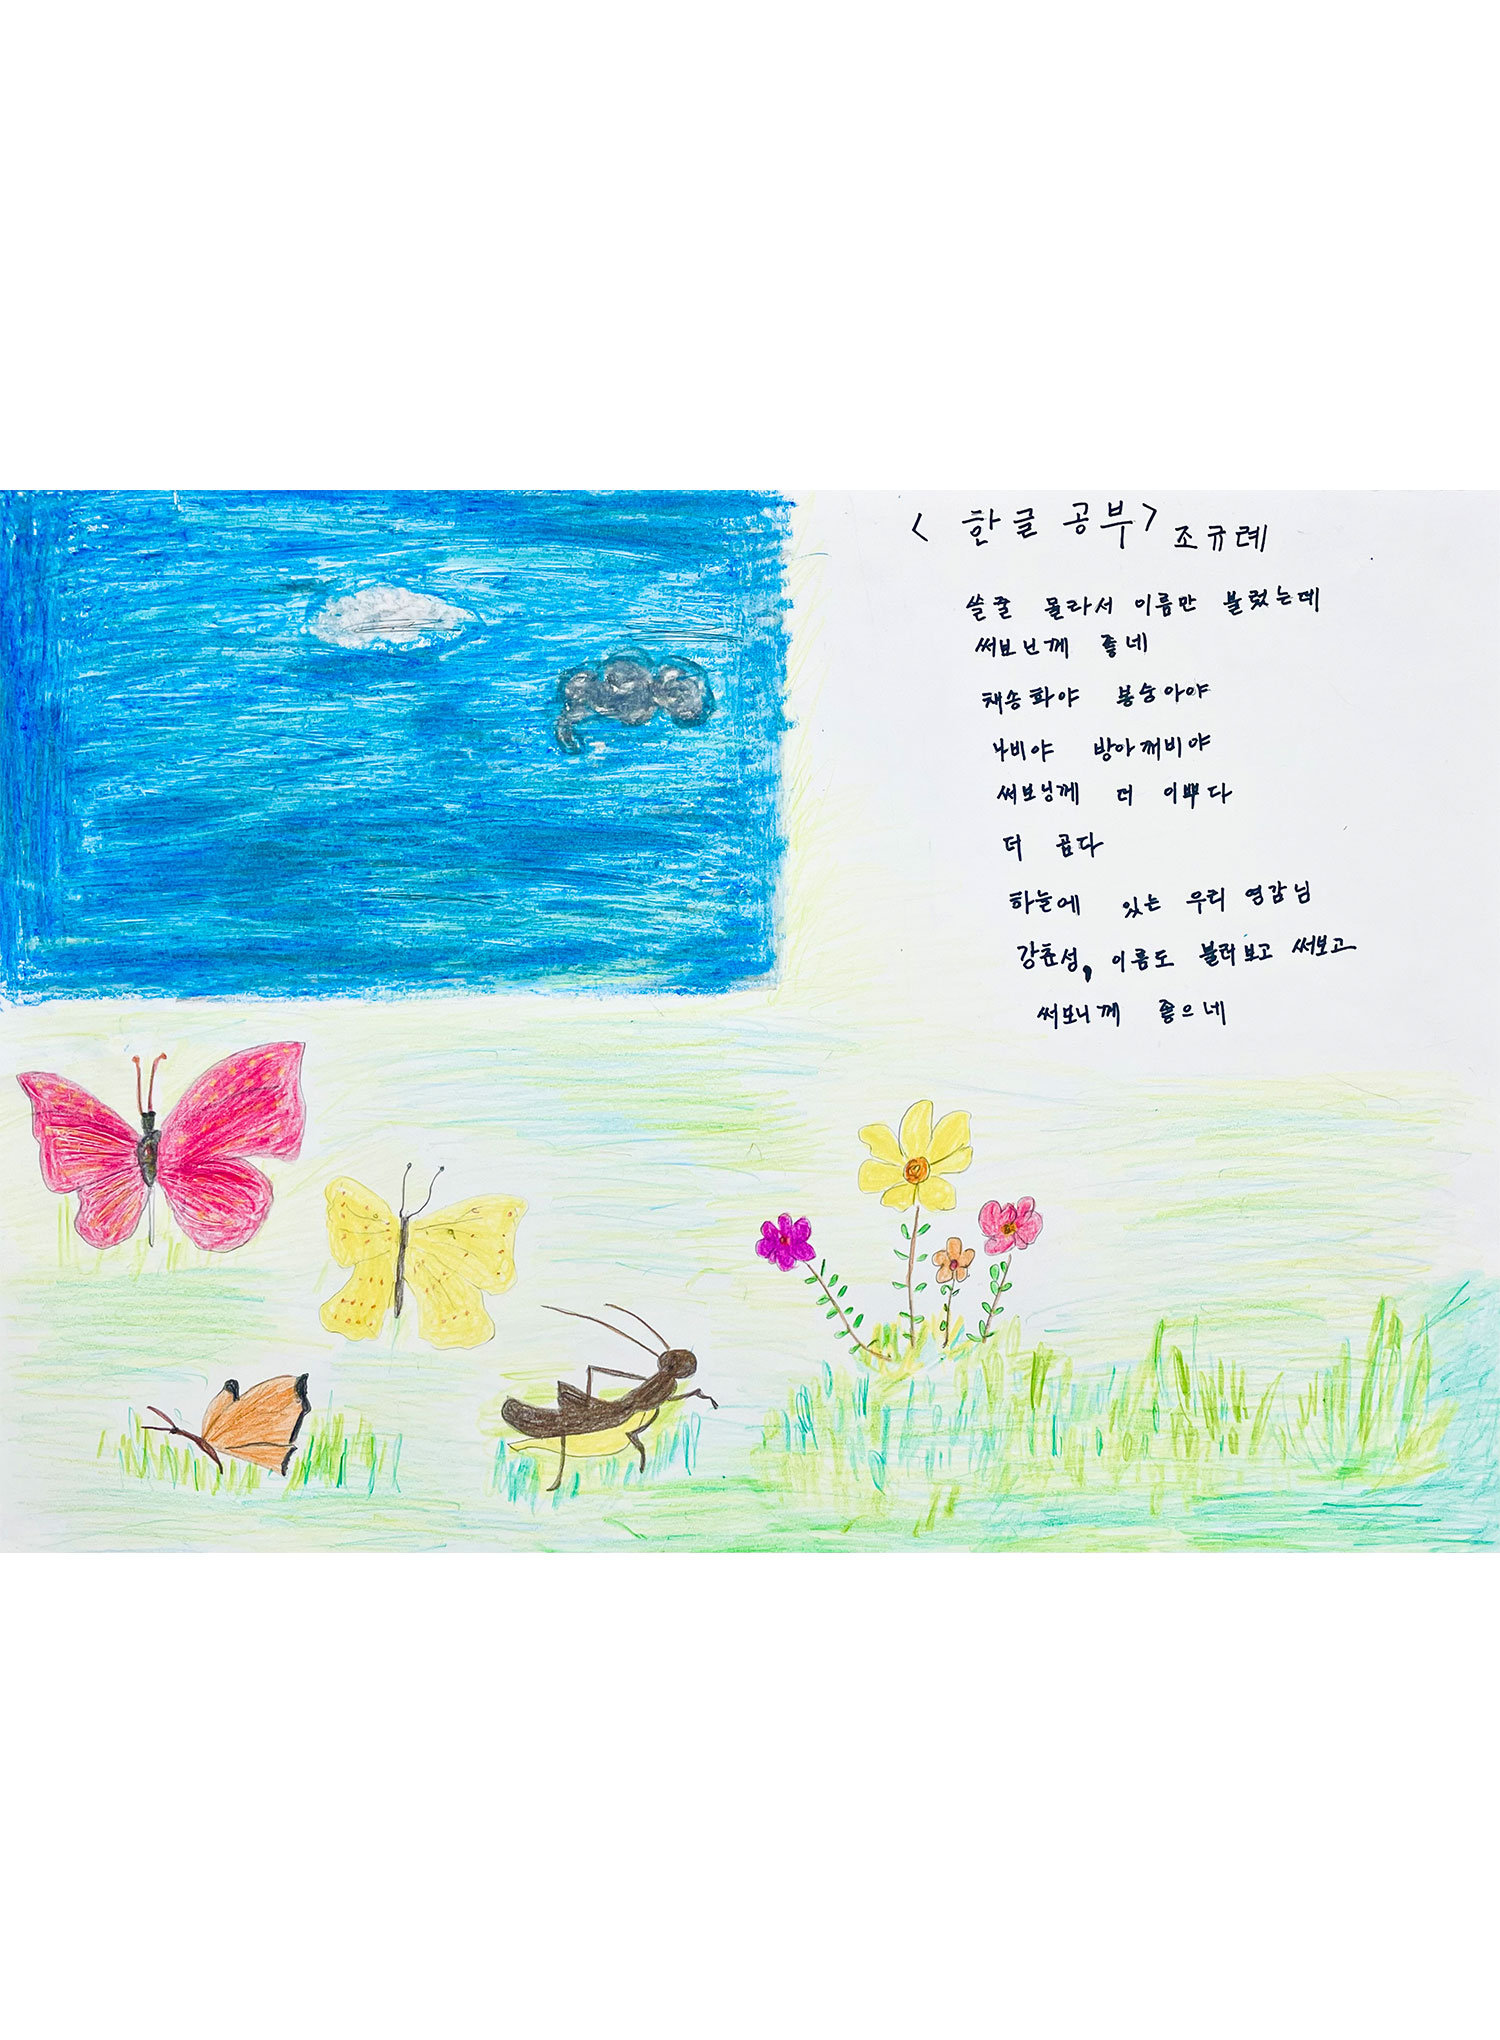 < 한글 공부> 조규례
쓸줄 몰라서 이름만 불렀는데
써보닌께 좋네
채송화야 봉숭아야
나비야 방아깨비야
써보닝께 더 이쁘다
더 곱다
하늘에 있는 우리 영감님
강춘성, 이름도 불러보고 써보고
써보니께 좋으네